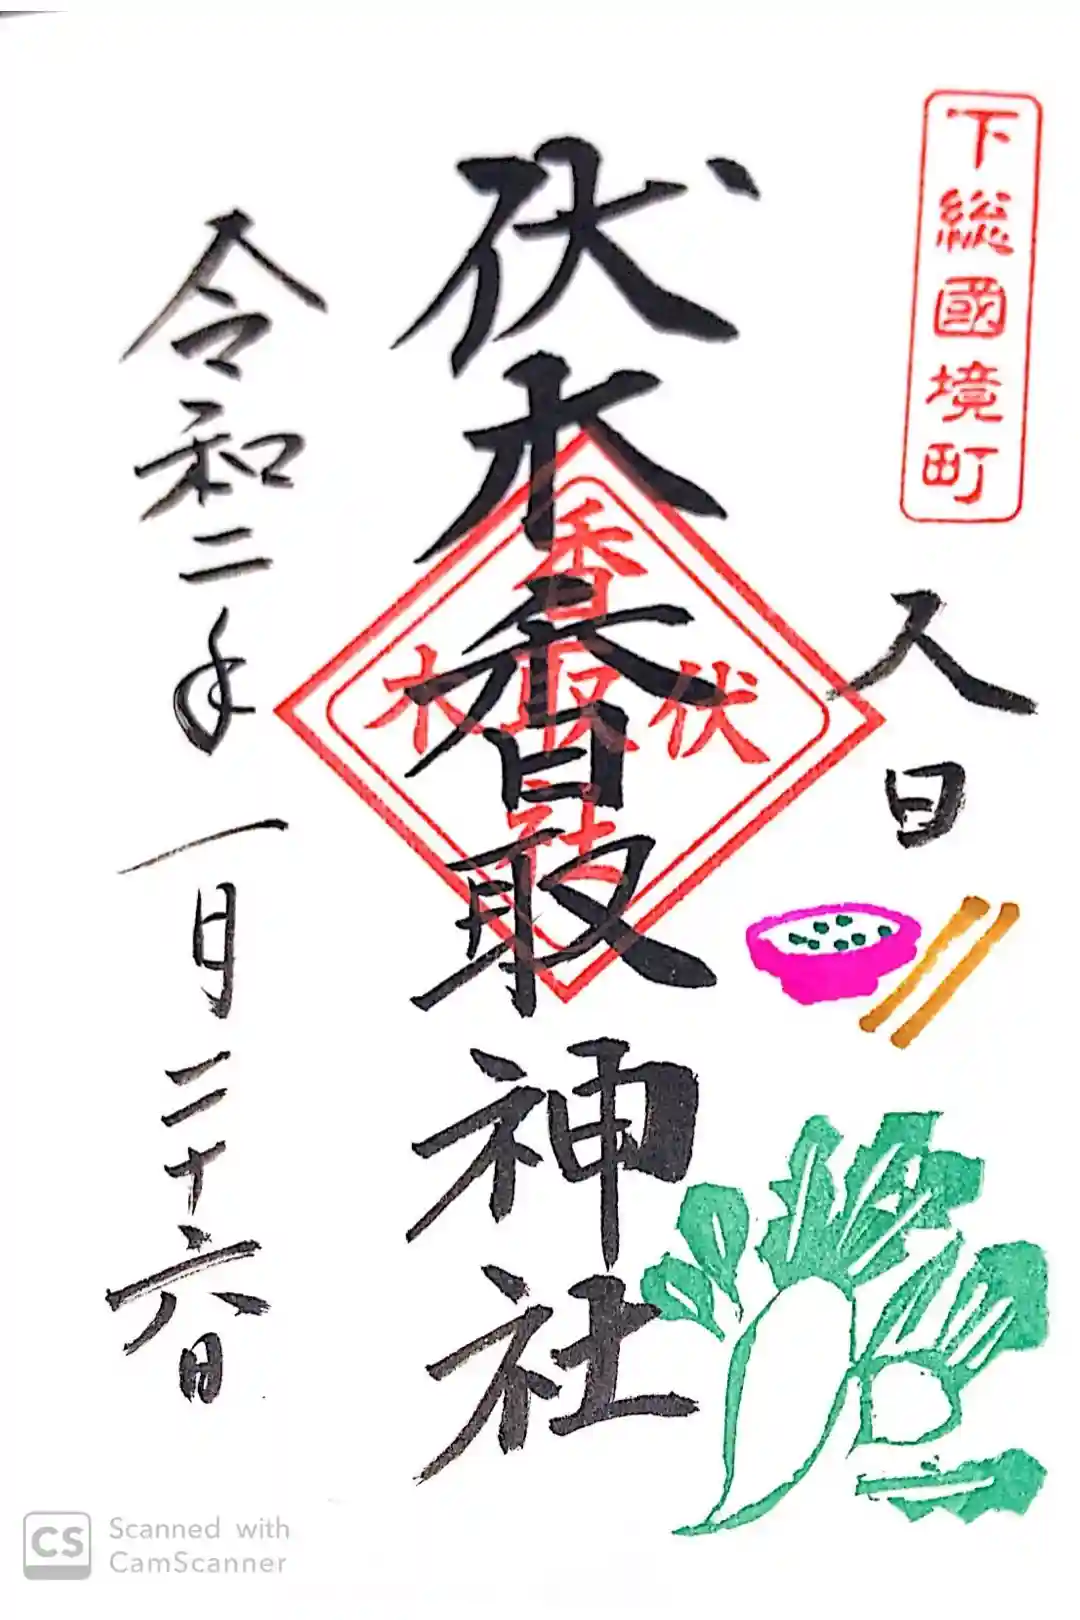 下総國境町
人日
伏木香取神社
香取社
伏木
令和二年一月二十六日
CS Scanned with
CamScanner